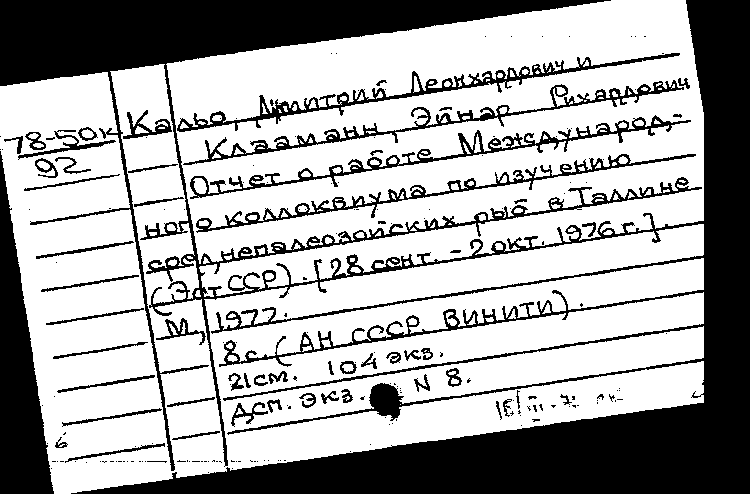 78-50к Кальо, Дмитрий Леонхардович и
92 Клааманн, Эйнар Рихардович
Отчет о работе Международ-
ного коллоквиума по изучению
среднепалеозойских рыб в Таллине
(Эст ССР). [28 сент. - 2 окт. 1976 г.].
М., 1977.
8 с. (АН СССР. ВИНИТИ).
21 см. 104 экз.
Деп. экз. N 8.
6